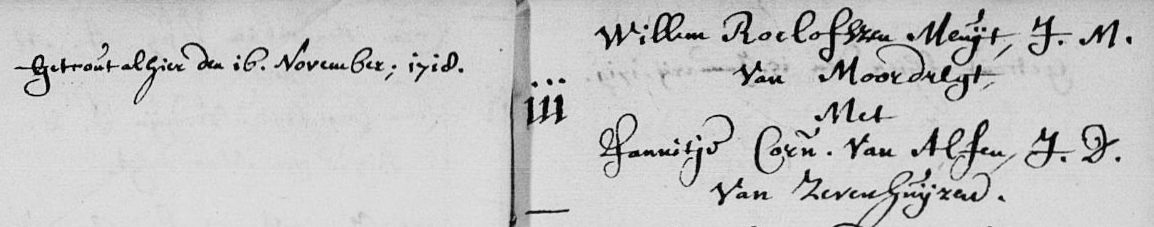 Getrout alhier den 16. November, 1718.
iii
Willem Roelofszen Meuÿt, J. M.
Van Moordregt,
Met
Jannitje Corn. Van Alfen, J. D.
Van Zevenhuÿzen.